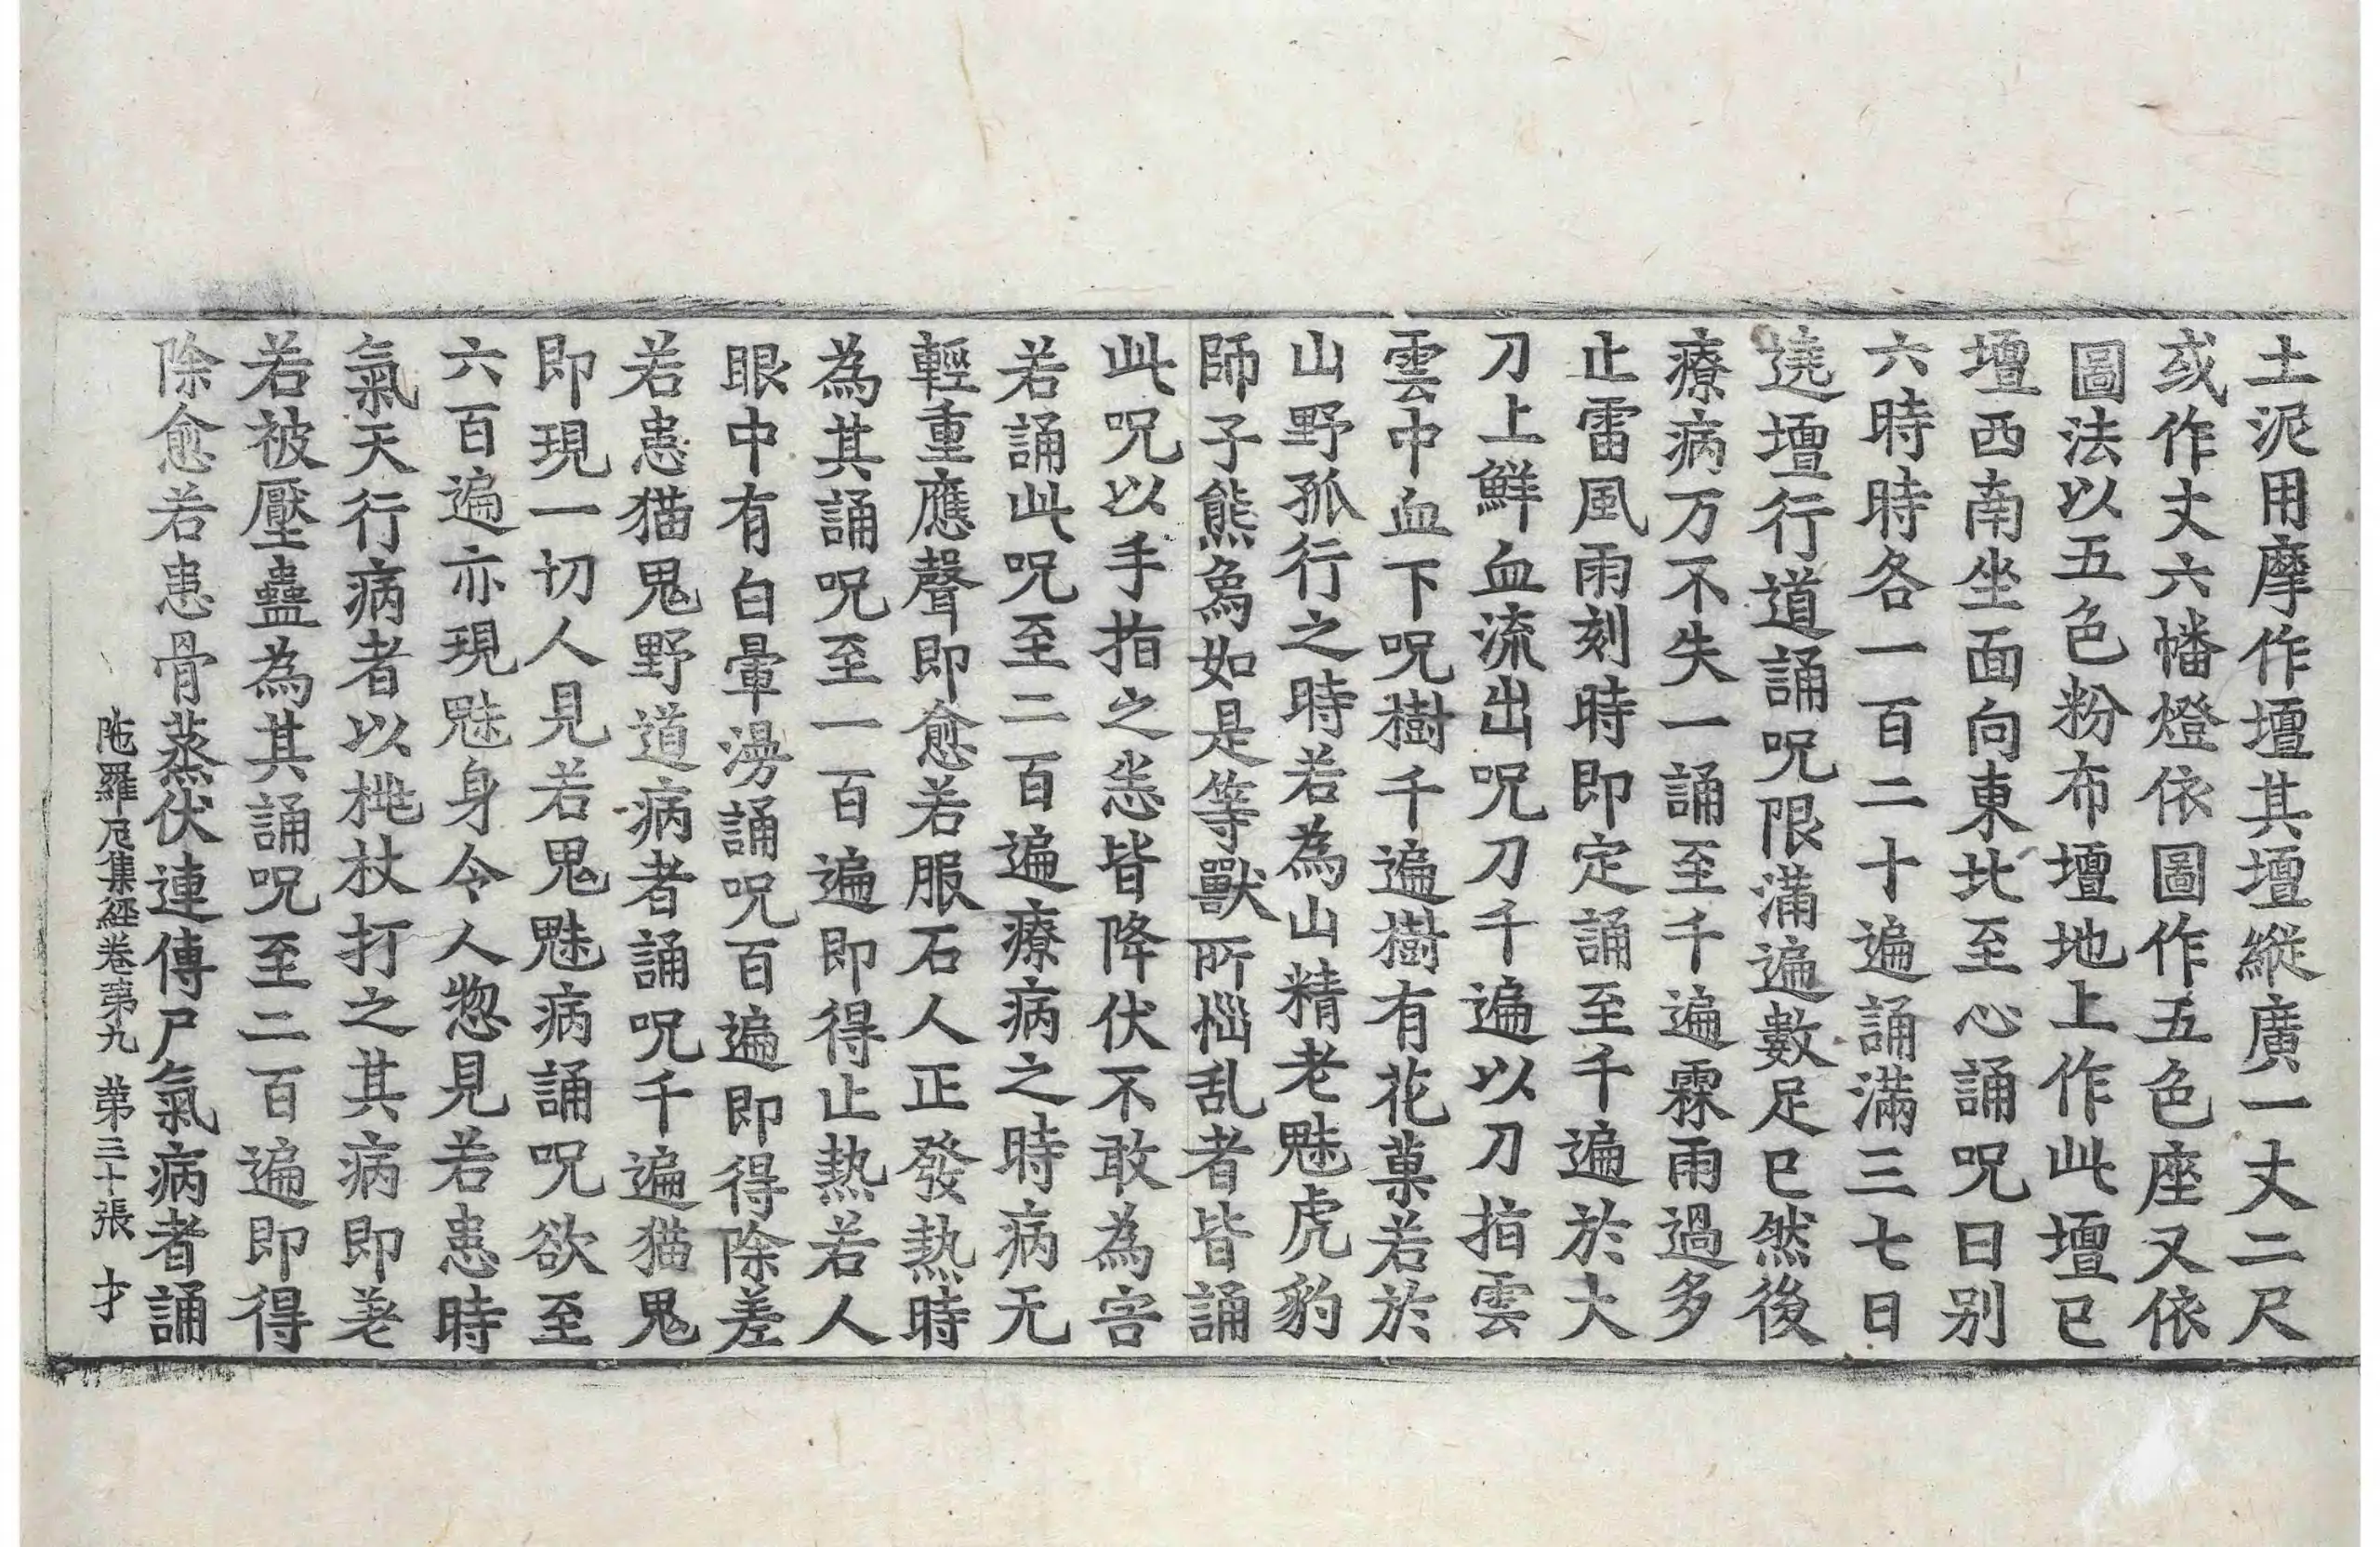 土泥用摩作壇其壇縱廣一丈二尺
或作丈六幡燈依圖作五色座又依
圖法以五色粉布壇地上作此壇已
壇西南坐面向東北至心誦呪日別
六時時各一百二十遍誦滿三七日
遶壇行道誦呪限滿遍數足已然後
療病万不失一誦至千遍霖雨過多
止雷風雨刻時即定誦至千遍於大
刀上鮮血流出呪刀千遍以刀指雲
雲中血下呪樹千遍樹有花菓若於
山野孤行之時若為山精老魅虎豹
師子熊烏如是等獸所惱乱者皆誦
此呪以手指之恙皆降伏不敢為害
若誦此呪至二百遍療病之時病无
輕重應聲即愈若服石人正發熱時
為其誦呪至一百遍即得止熱若人
眼中有白暈漫誦呪百遍即得除差
若患猫鬼野道病者誦呪千遍猫鬼
即現一切人見若鬼魅病誦呪欲至
六百遍亦現魅身令人惣見若患時
氣天行病者以桃杖打之其病即差
若被壓蠱為其誦呪至二百遍即得
除愈若患骨蒸伏連傳尸氣病者誦
陁羅尼集経卷第九 第三十張 才